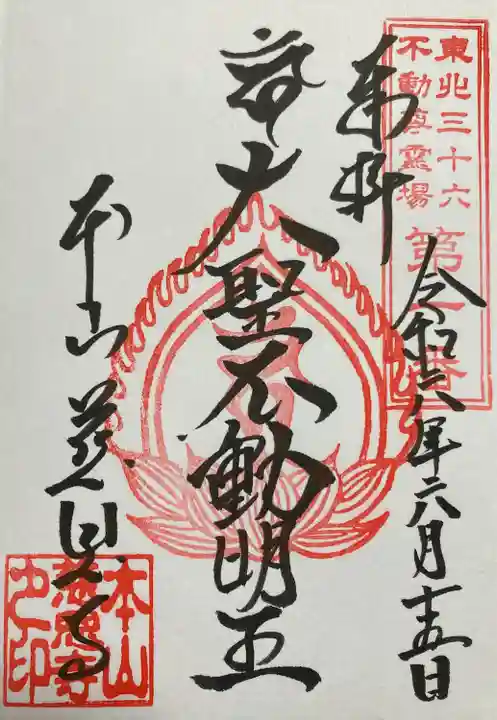 東北三十六
不動尊霊場
第一番
奉拝
令和六年六月十五日
大聖不動明王
本山慈恩寺
本山
慈恩寺
之印